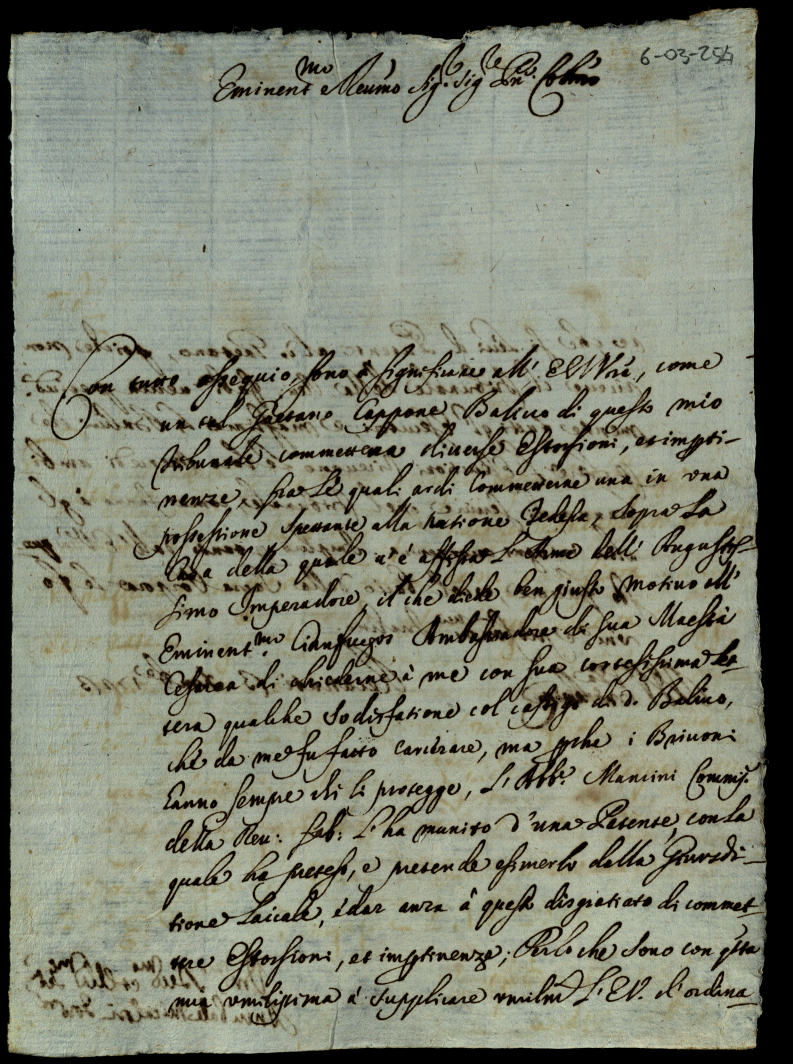 6-03-254
Eminent.mo e Reu.mo Sig.r Sig.re P.ne Col.mo
Con tutto ossequio sono à significare all' E V V.ra, come
un tal Gaetano Cappone Baliuo di questo mio
Tribunale commetteua diuerse Estorsioni, et imp.ti-
nenze, fra le quali ardì Commetterne una in una
possessione spettante alla natione Tedesca, sopra La
Casa della quale u'è affissa L'Arme dell' Augustis-
simo Imperadore, il che diede ben giusto motiuo all'
Eminent.mo Cianfuegos Ambasciadore di Sua Maestà
Cesarea di chiederne à me con sua cortesissima let-
tera qualche Sodisfatione col castigo di d.o Baliuo,
che da me fu fatto carcerare, ma p.che i Briuoni
hanno sempre chi li protegge, L'Abb.e Mancini Comm.o
della Reu: Fab: L'ha munito d'una Patente, con la
quale ha preteso, e pretende esimerlo dalla Giurisdi-
tione Laicale, e dar anza à questo disgratiato di commet-
tere Estorsioni, et imp.tinenze; Per lo che sono con q.sta
mia umilissima à supplicare umilm.te L'E V. d'ordina-